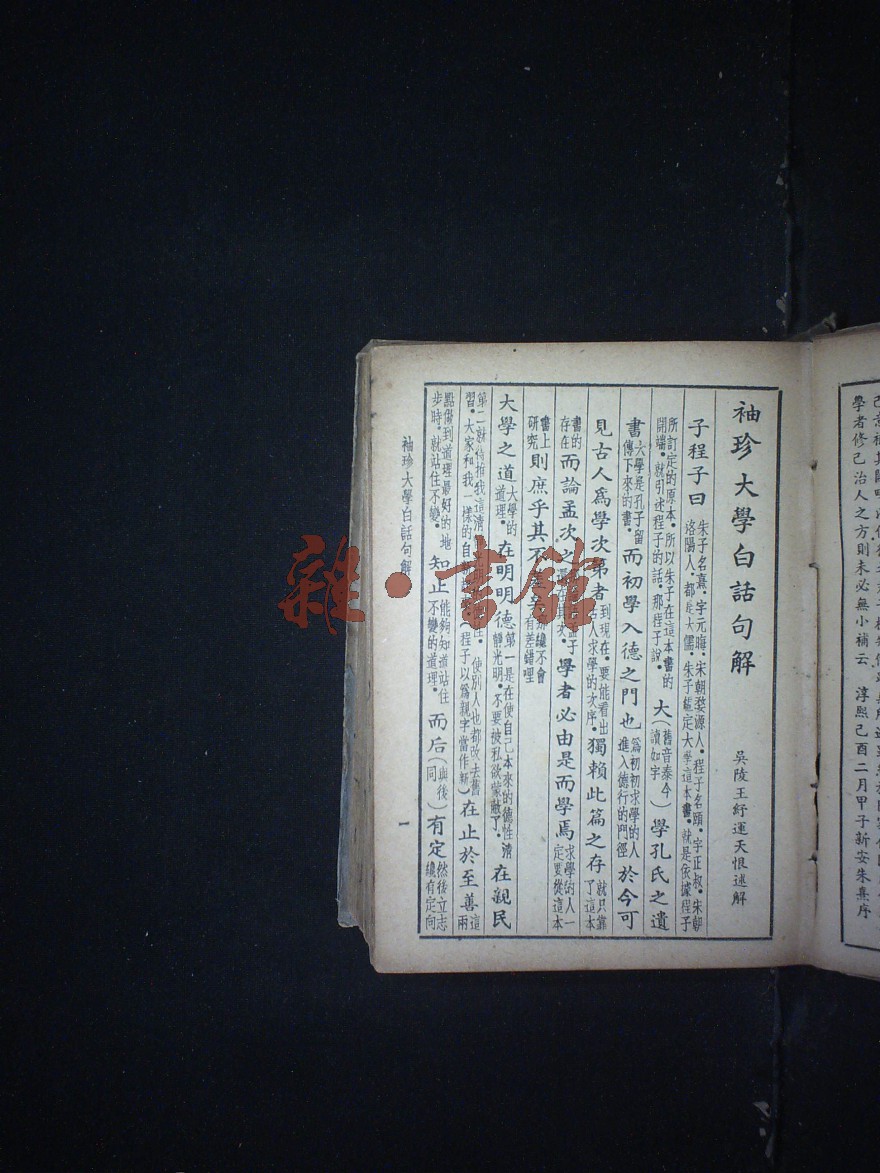 學者修己治人之方則未必無小補云 淳熙己酉二月甲子新安朱熹序
袖珍大學白話句解
吳陵王紓運天恨述解
子程子曰 朱子名熹．字元晦．宋朝婺源人．程子名頤．字正叔．朱朝洛陽人．都是大儒．朱子鑑定大學這本書．就是依據程子
所訂定的原本．所以朱子在這本書的開端．就引述程子的話．那程子說． 大（舊音泰今讀如字）學孔氏之遺
書 大學是孔子留傳下來的書． 而初學入德之門也 爲初初求學的人進入德行的門徑 於今可
見古人爲學次第者 到現在．要能看出古人求學的次序． 獨賴此篇之存 就只靠了這本
書的存在 而論孟次之 學者必由是而學焉 求學的人一定要從這本
書上研究 則庶乎其不差矣 纔不會有差錯哩
大學之道 大學的道理． 在明明德 第一是在使自己本來的德性清靜光明．不要被私欲蒙蔽了． 在親民
第二就 推我這清 使別人也都改去舊習．大家和我一樣的自 （程子以爲親字當作新） 在止於至善 這兩
點做到道理最好的地步時．就站住不變． 知止 能夠知道站住不變的道理． 而后（與後同）有定 然後立志纔有定向
袖珍大學白話句解
一
雜·書館